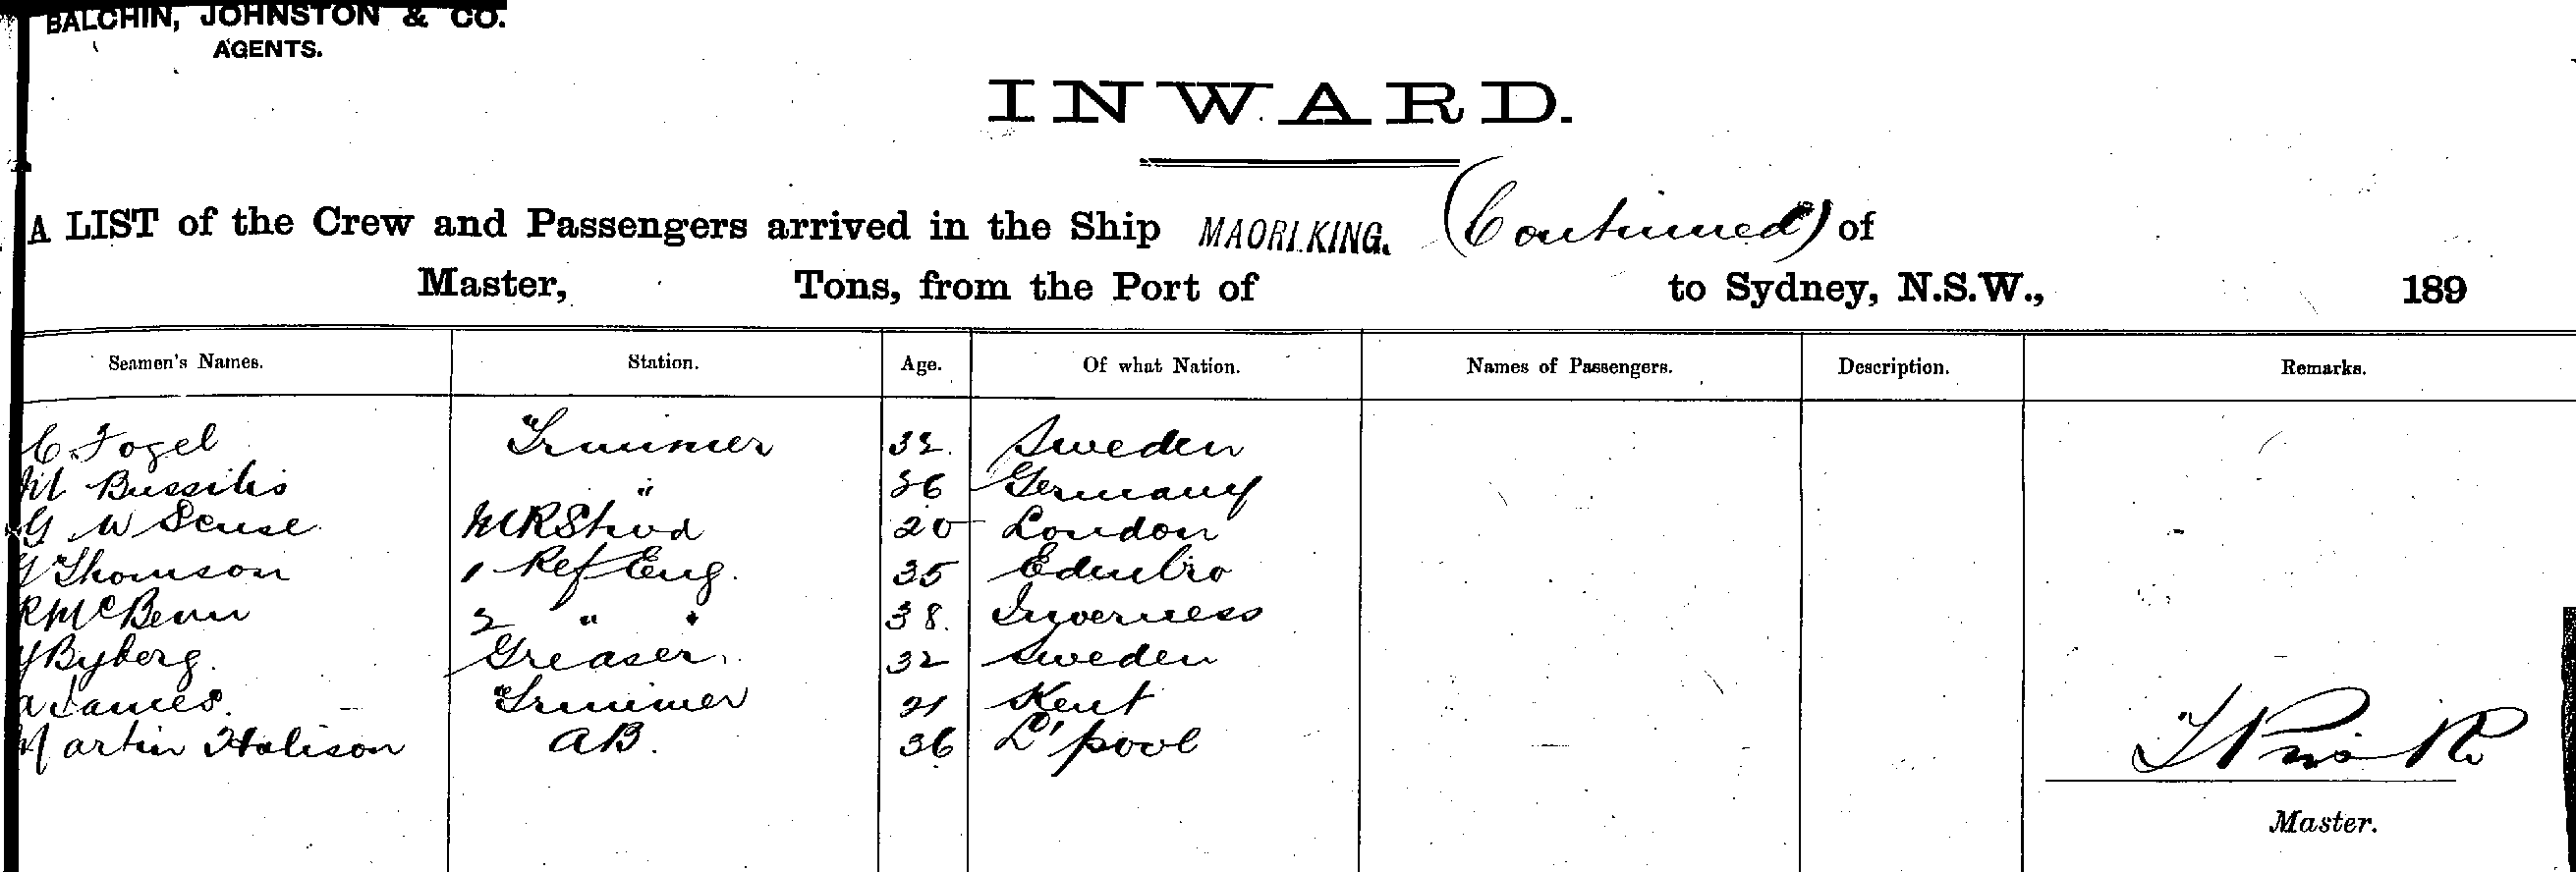 BALCHIN, JOHNSTON & CO.
AGENTS.
INWARD.
A LIST of the Crew and Passengers arrived in the Ship MAORI KING. (Continued) of
Master, Tons, from the Port of to Sydney, N.S.W., 189
Seamen's Names. Station. Age. Of what Nation. Names of Passengers. Description. Remarks.
C Fogel Trimmer 32. Sweden
M Bussilis " 36 Germany
G W Sense MRStwd 20 London
Thomson 1 Ref Eng. 35 Edinbro
R McBenn 2 " " 38. Inverness
Byberg. Greaser. 32 Sweden
A James. Trimmer 21 Kent
Martin Halison AB. 36 L'pool
Master.